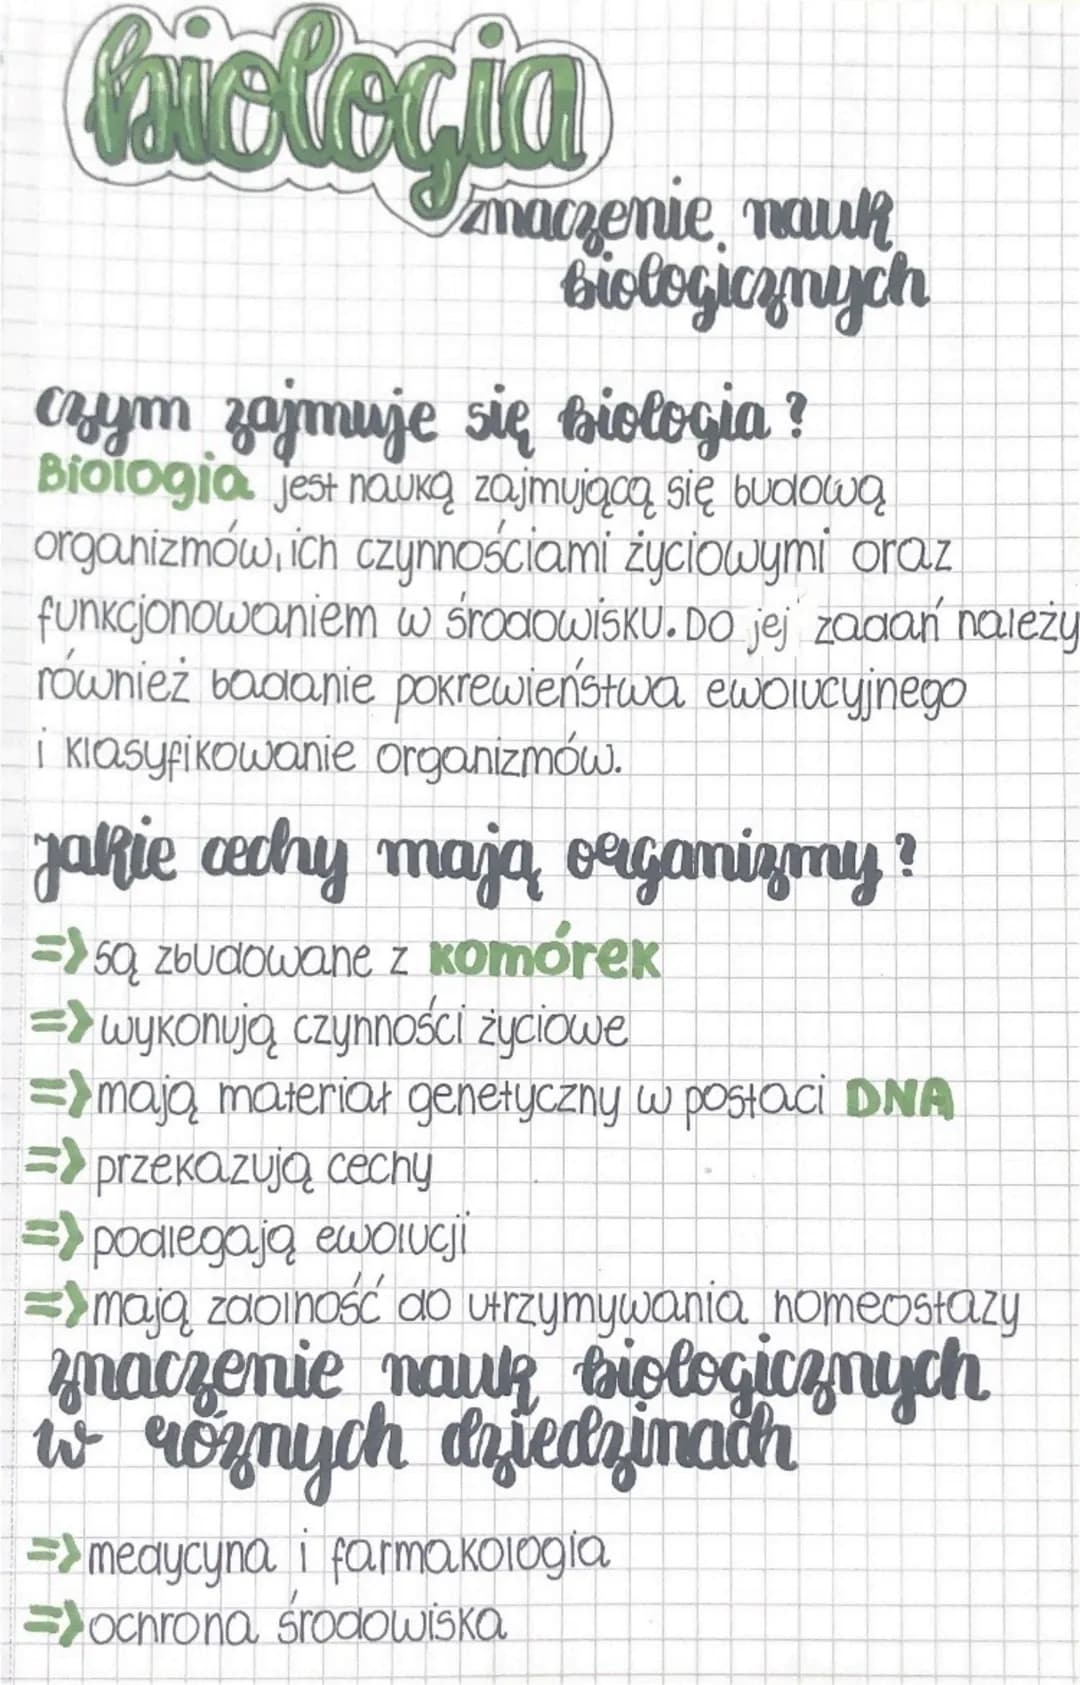 biologia
znaczenie nauk
biologicznych
czym zajmuje się biologia?
Biologia jest nauką zajmującą się budową
organizmów, ich czynnościami życiowymi oraz
funkcjonowaniem w środowisku. Do jej zadań należy
również badanie pokrewieństwa ewolucyjnego
i klasyfikowanie organizmów.
jakie cechy mają organizmy?
=> są zbudowane z komórek
=> wykonują czynności życiowe
=> mają materiał genetyczny w postaci DNA
=> przekazują cechy
=> podlegają ewolucji
=> mają zdolność do utrzymywania homeostazy
znaczenie nauk biologicznych
w różnych dziedzinach
=> medycyna i farmakologia
=> ochrona środowiska